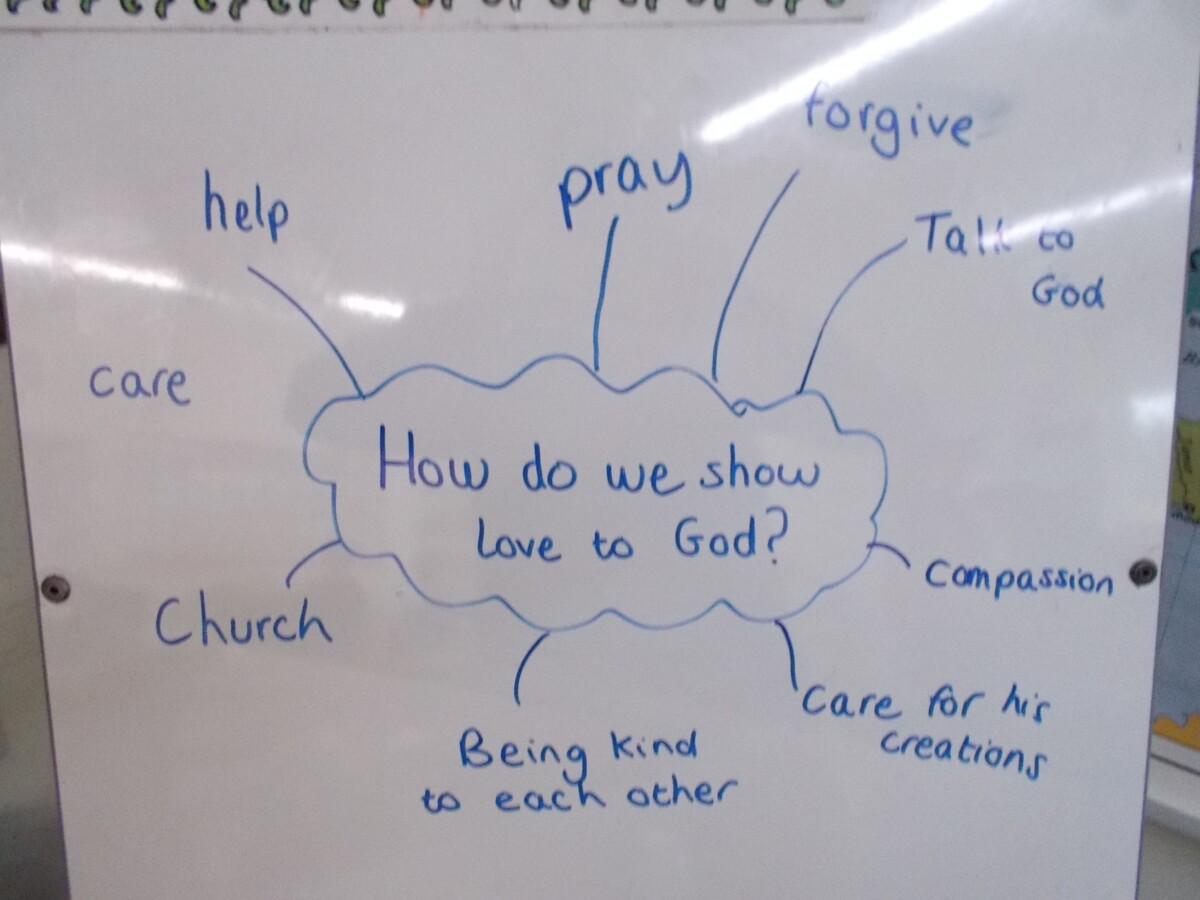 forgive
pray
help
Talk to
God
care
How do we show
love to God?
Compassion
Church
Care for his
creations
Being kind
to each other